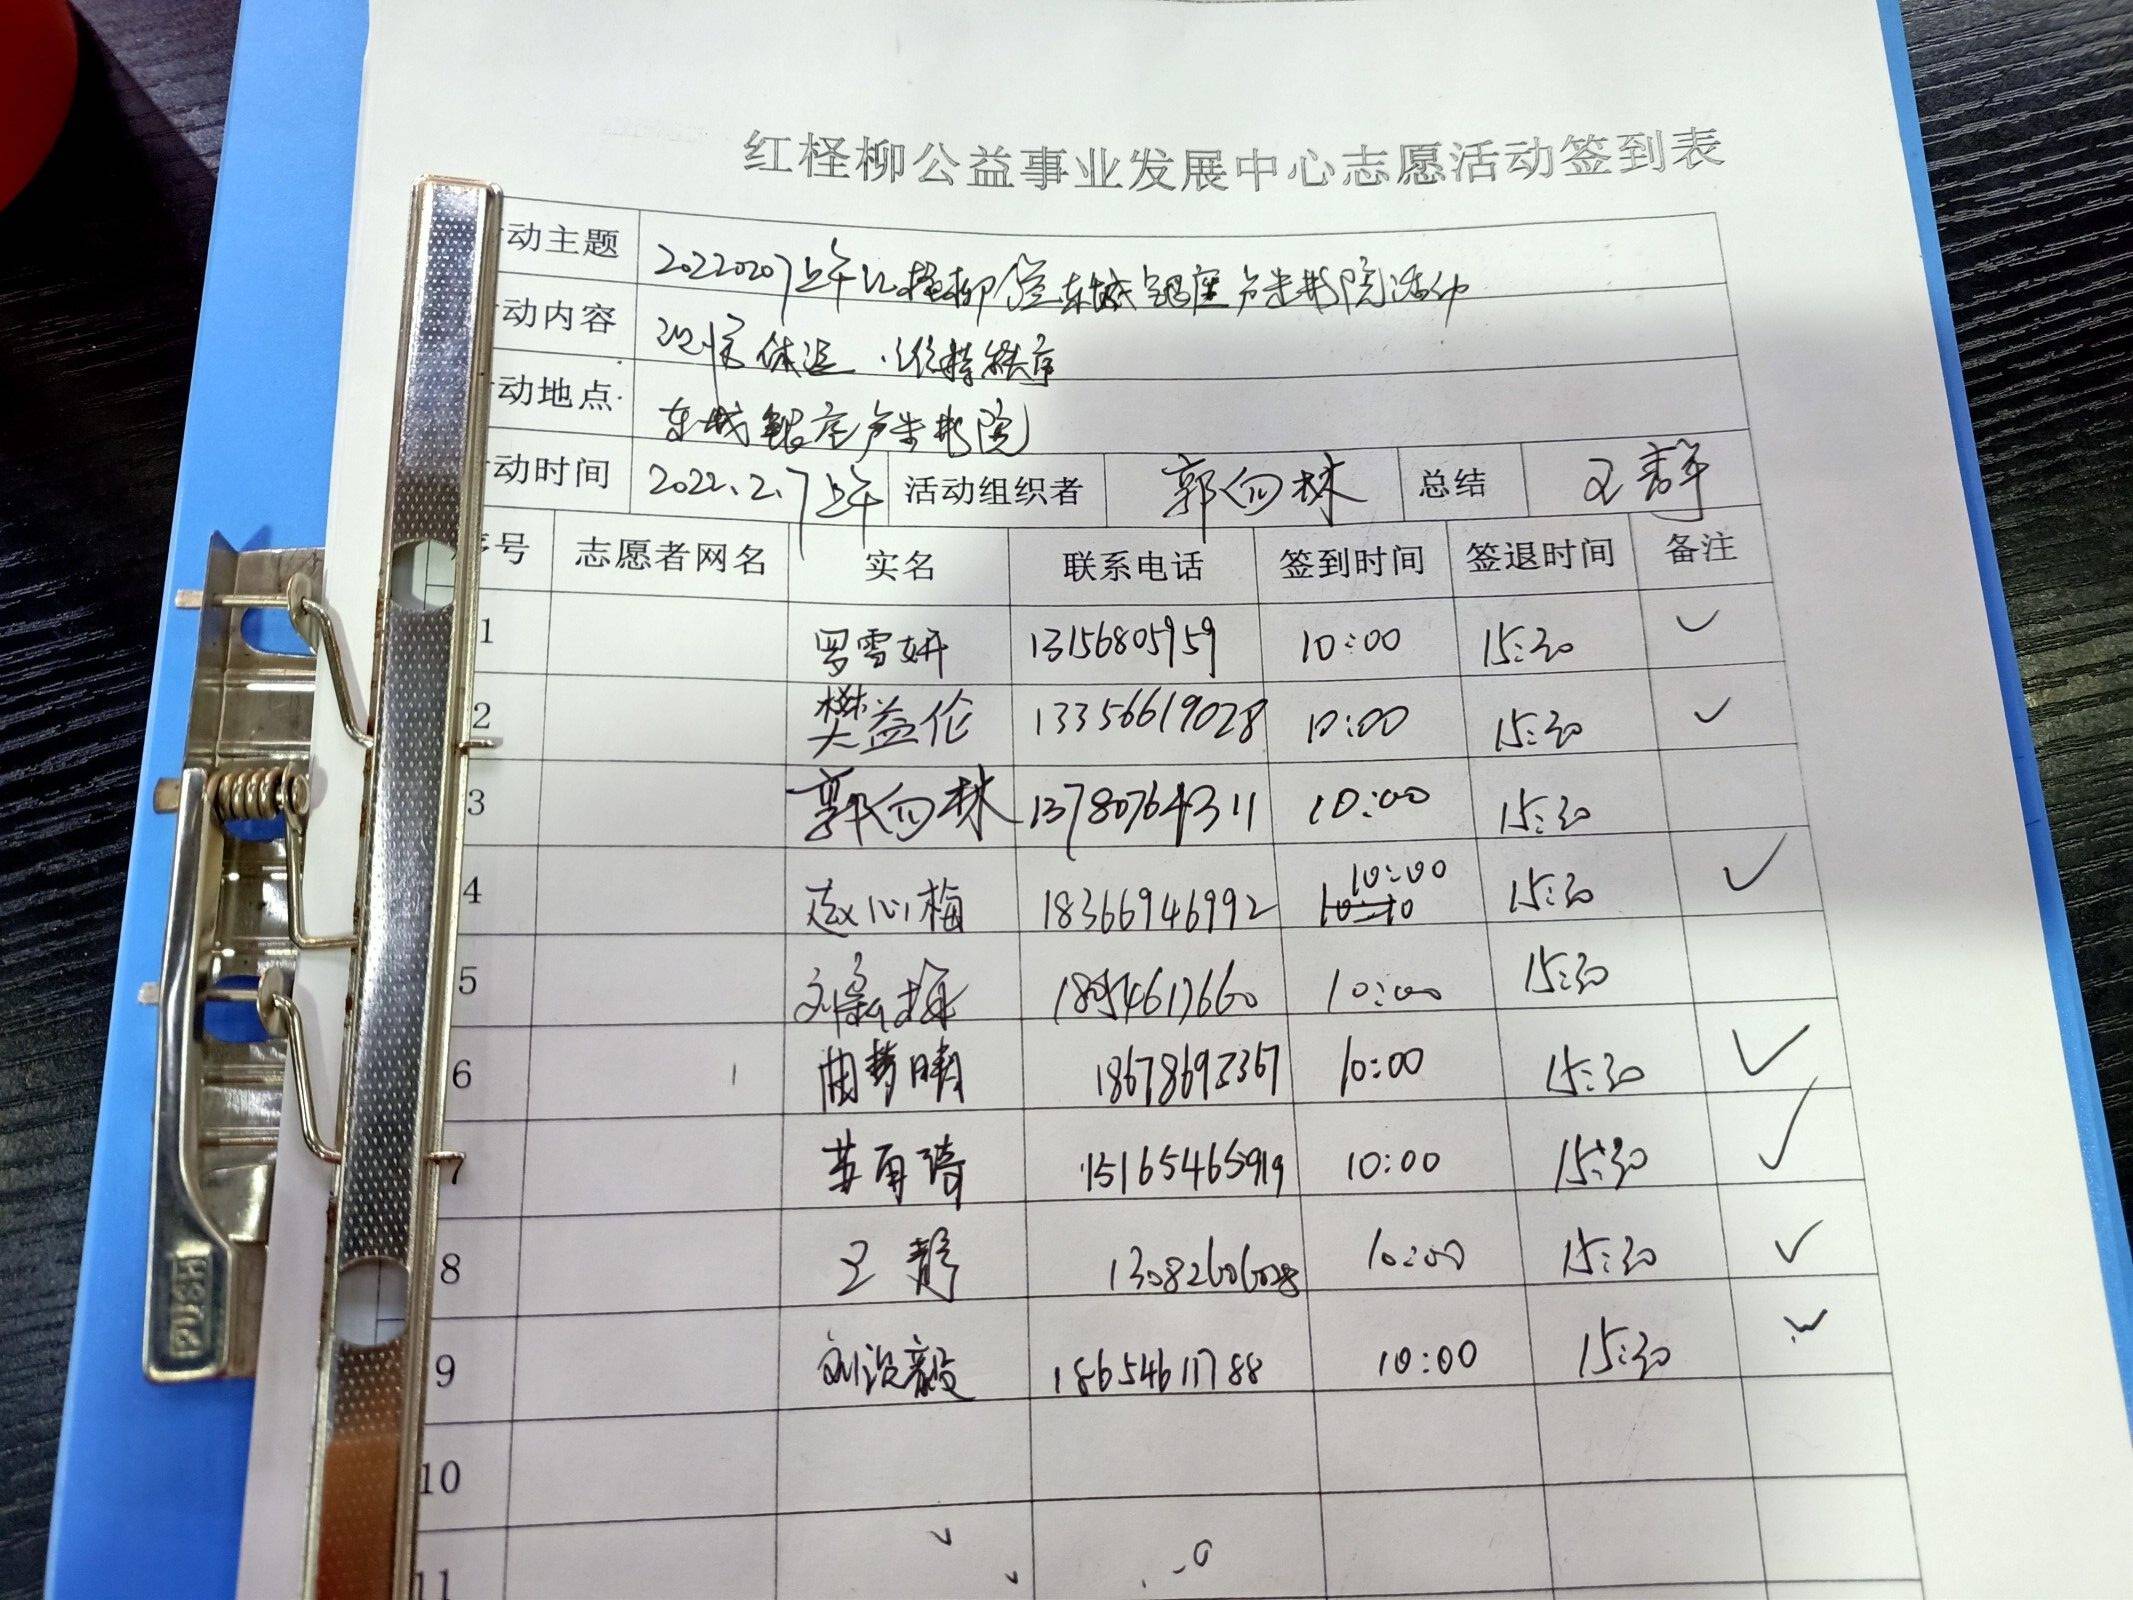 红柽柳公益事业发展中心志愿活动签到表
动主题 20220207上午红柽柳 东城银座 书院活动
动内容 测量体温、维持秩序
动地点 东城银座 书院
动时间 2022.2.7上午 活动组织者 郭向林 总结 王静
序号 志愿者网名 实名 联系电话 签到时间 签退时间 备注
1 罗雪妍 13156805959 10:00 15:30 ✓
2 樊益伦 13356619028 10:00 15:30 ✓
3 郭向林 13780764311 10:00 15:30
4 赵心梅 18366946992 10:00 15:30 ✓
5 刘 18954617660 10:00 15:30
6 曲梦晴 10:00 15:30 ✓
7 苏雨琦 15165465919 10:00 15:30 ✓
8 王静 13082606028 10:00 15:30 ✓
9 刘 毅 18654611788 10:00 15:30 ✓
10
11
PUSH